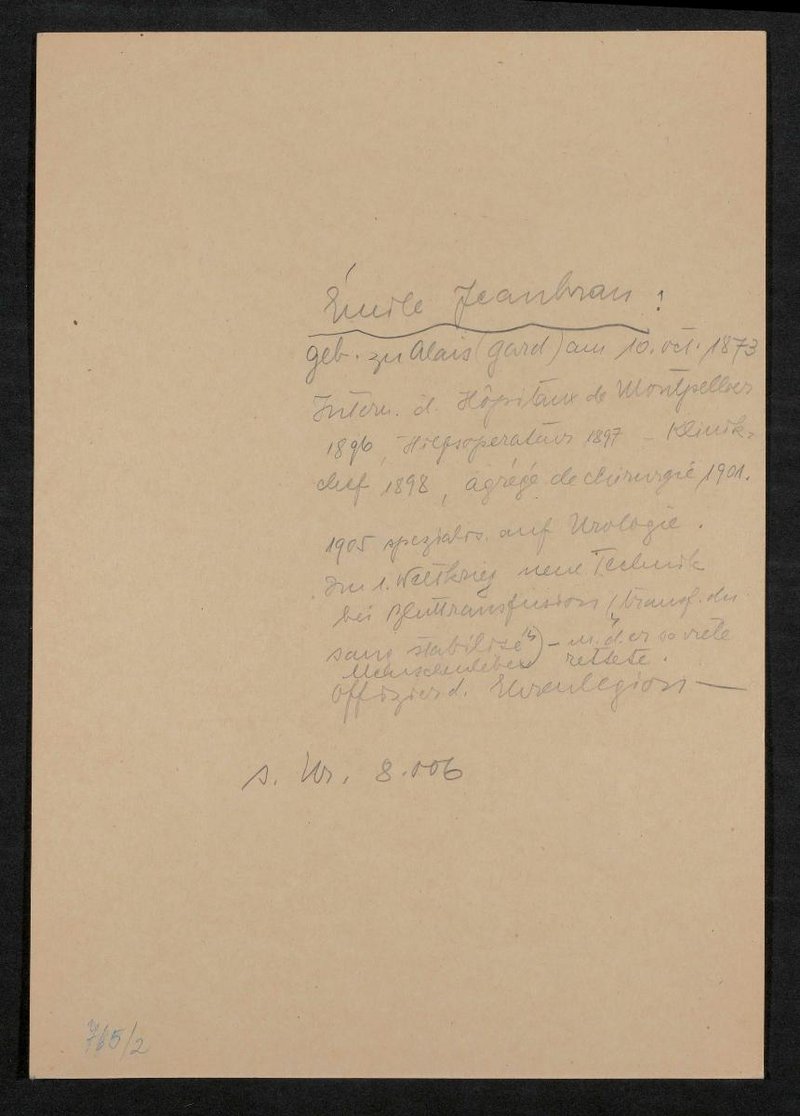 Émile Jeanbrau :
geb. zu Alais (Gard) am 10. oct. 1873
Intern. d. Hôpitaux de Montpellier
1896, Hilfsoperateur 1897 – Klinik-
chef 1898, agrégé de chirurgie 1901.
1905 spezialis. auf Urologie.
Im 1. Weltkrieg neue Technik
bei Bluttransfusion („transf. du
sang stabilisé“) – m. d. er so viele
Menschenleben rettete.
Offizier d. Ehrenlegion —
s. Nr. 8.006
765/2